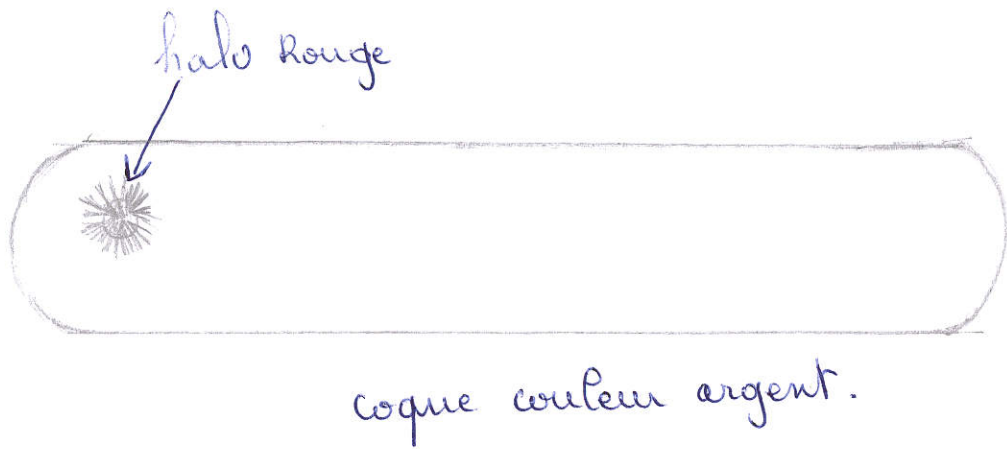 halo Rouge
coque couleur argent.